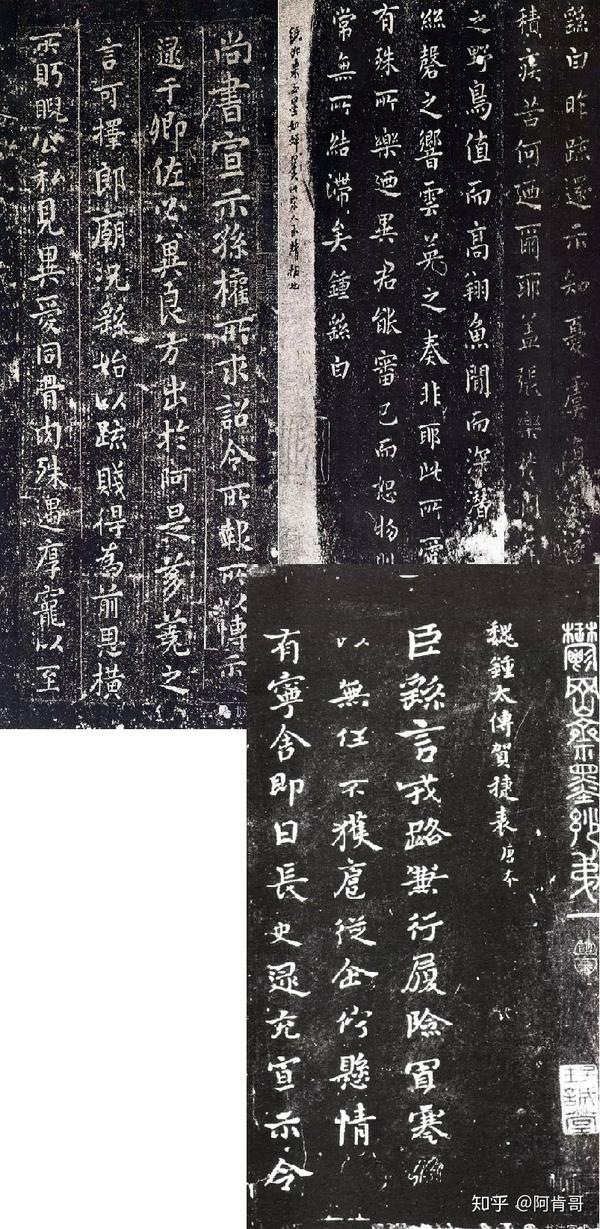 繇白昨疏還示知憂虞復深
積疾苦何迺爾耶蓋張樂於洞
之野鳥值而高翔魚聞而深潛
絲磬之響雲英之奏非耶此所愛
有殊所樂迺異君能審己而恕物則
常無所結滯矣鍾繇白
尚書宣示孫權所求詔令所報所以博示
逮于卿佐必冀良方出於阿是芻蕘之
言可擇郎廟況繇始以疏賤得為前恩橫
所盱睨公私見異愛同骨肉殊遇厚寵以至
鬱岡齋墨妙第一
魏鍾太傅賀捷表 唐本
臣繇言戎路兼行履險冒寒臣
以無任不獲扈從企佇懸情
有寧舍即日長史逮充宣示令
知乎 @阿肯哥